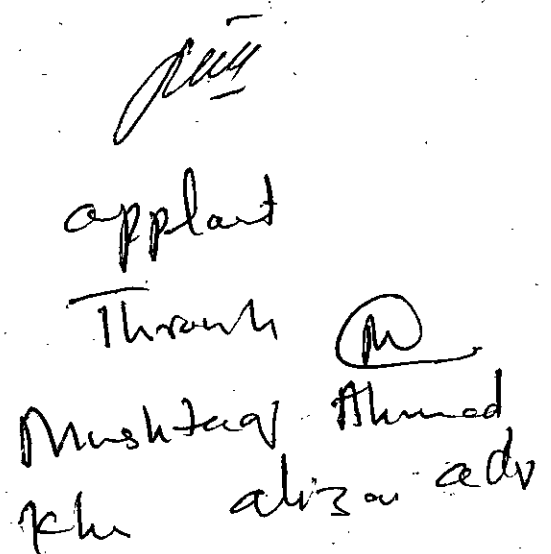 applant
Through
Mushtaq Ahmed
Khn alizai adv